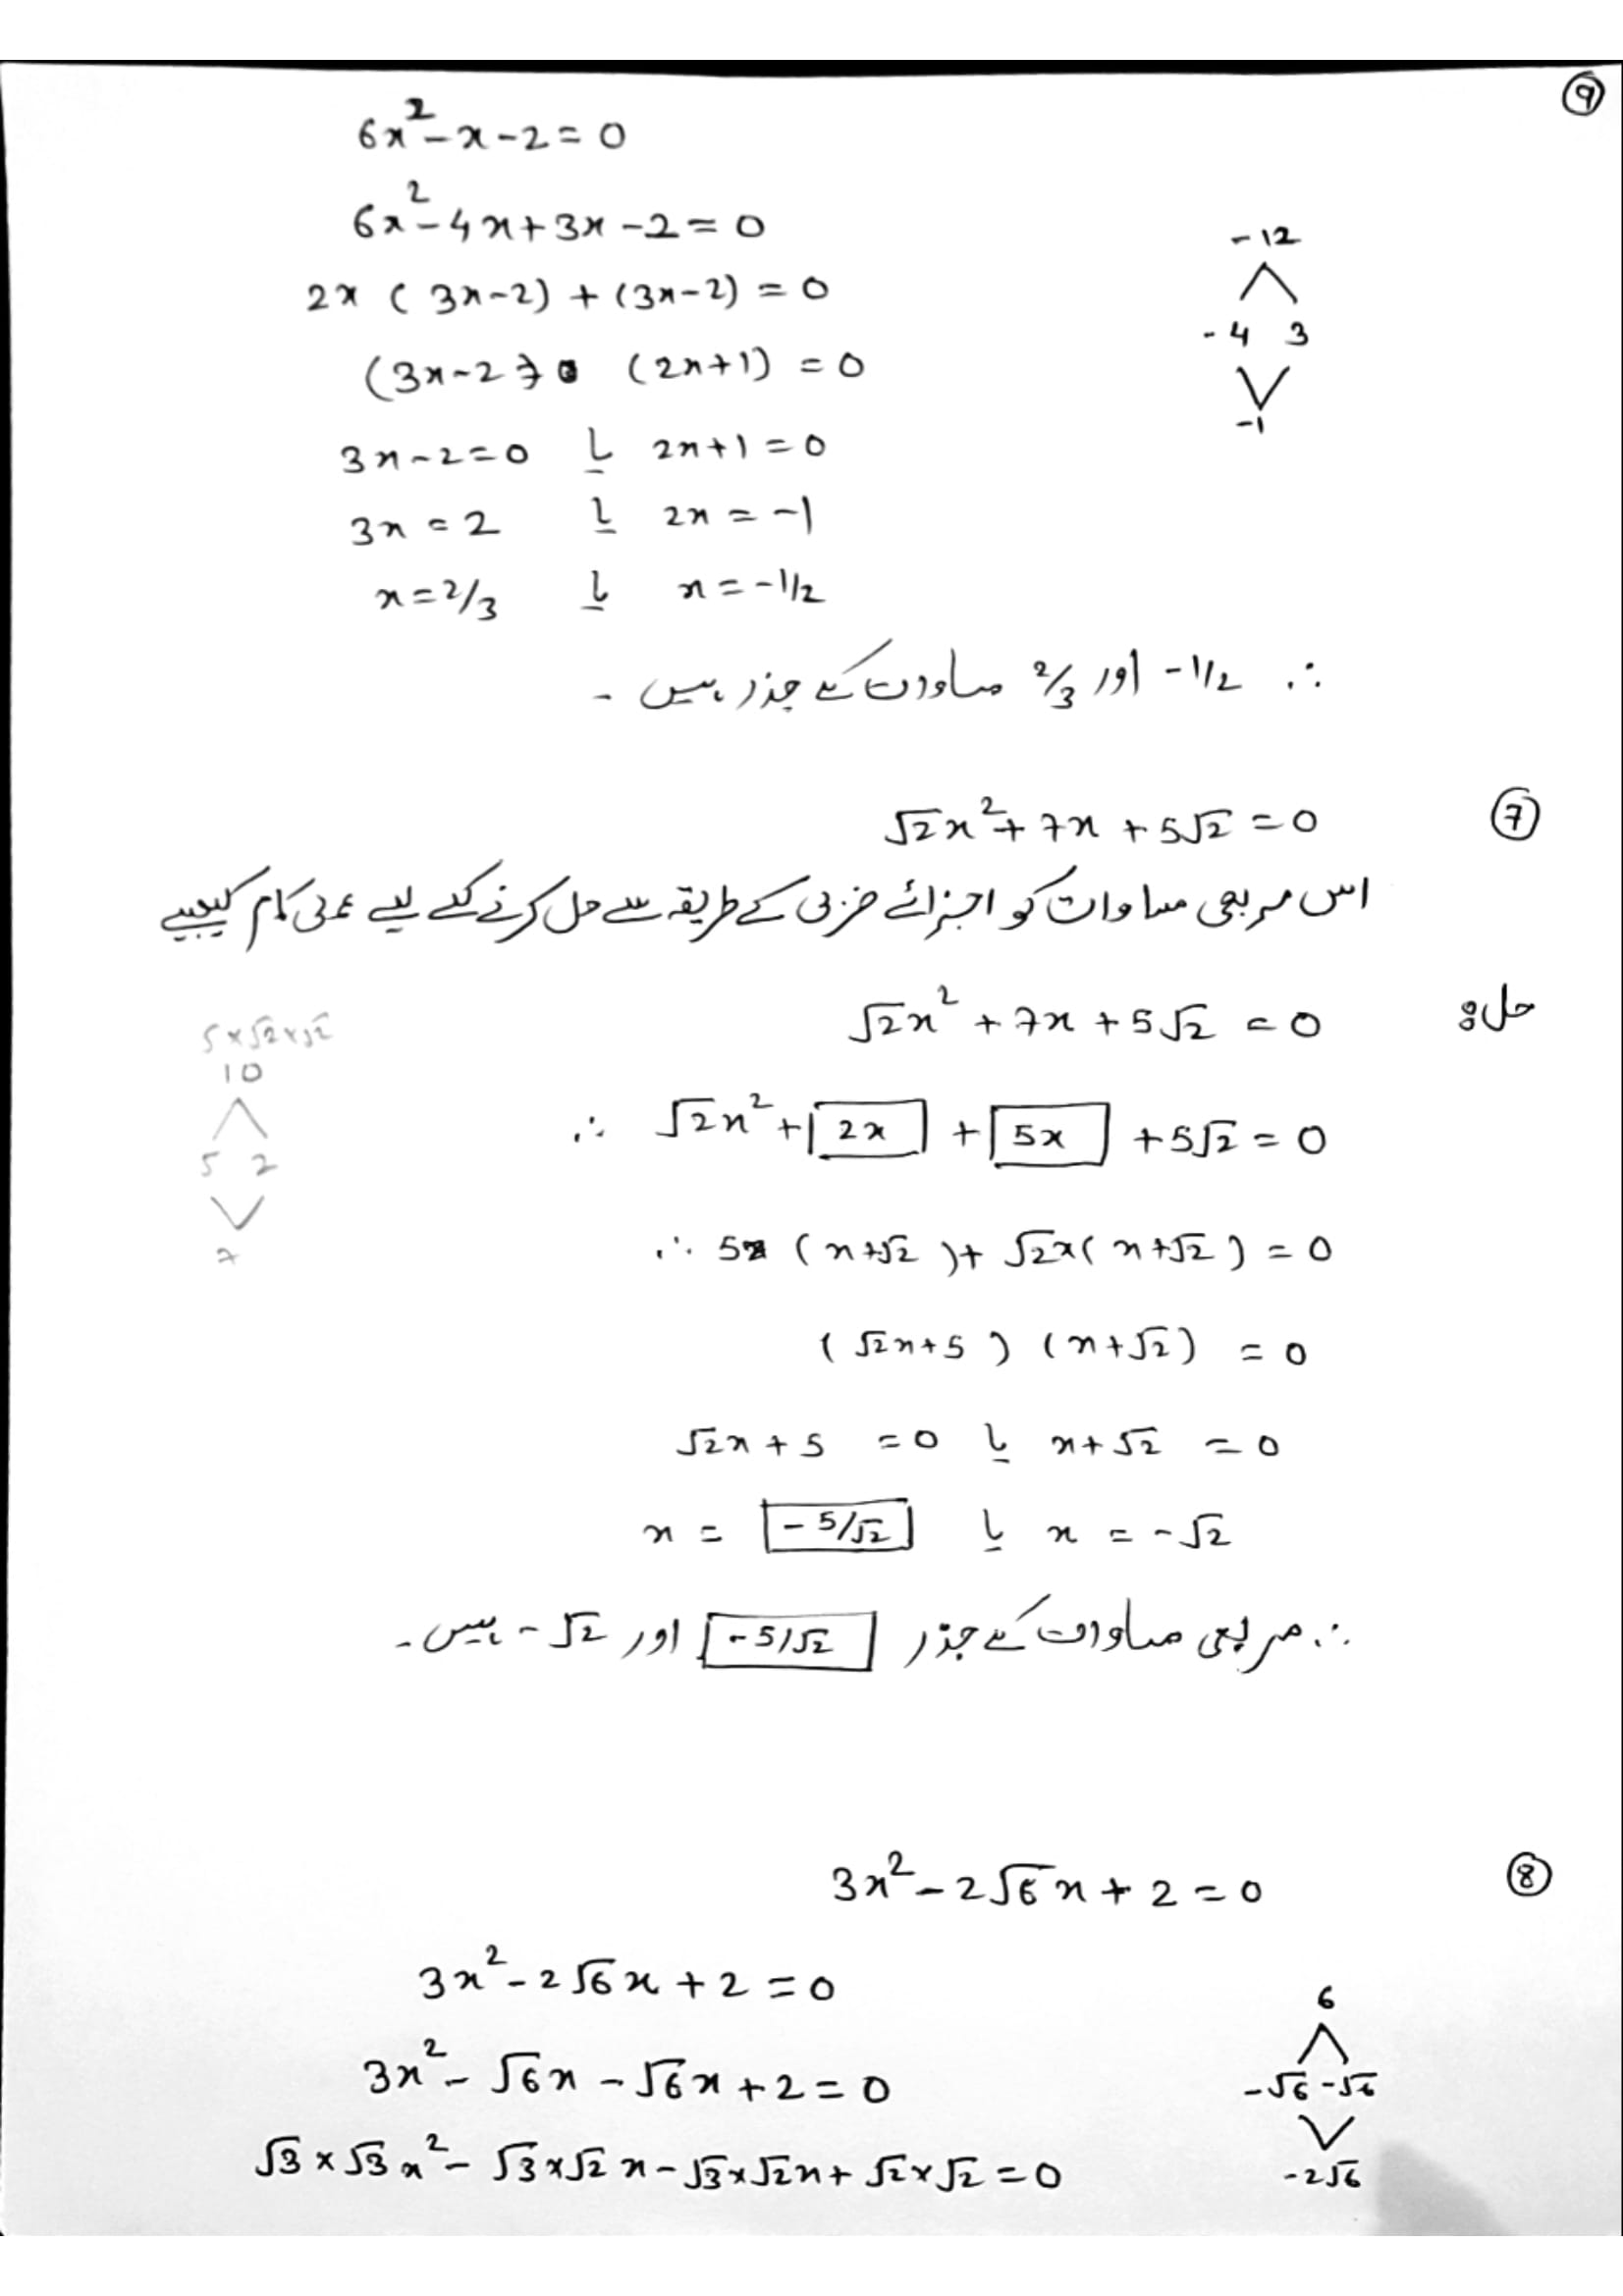 9
6x²-x-2=0
6x²-4x+3x-2=0
-12
2x (3x-2) + (3x-2) = 0
-4 3
(3x-2) (2x+1) = 0
-1
3x-2=0 یا 2x+1=0
3x = 2 یا 2x = -1
x=2/3 یا x=-1/2
∴ -1/2 اور 2/3 مساوات کے جذر ہیں -
⑦ √2x²+7x+5√2=0
اس مربعی مساوات کو اجزائے ضربی کے طریقہ سے حل کرنے کے لیے عملی کام کیجیے
حل: √2x²+7x+5√2=0
5×√2×√2
10
∴ √2x²+ 2x + 5x +5√2=0
5 2
7
∴ 5 (x+√2)+ √2x(x+√2) = 0
(√2x+5) (x+√2) = 0
√2x+5 =0 یا x+√2 =0
x = -5/√2 یا x = -√2
∴ مربعی مساوات کے جذر -5/√2 اور -√2 ہیں -
⑧ 3x²-2√6x+2=0
3x²-2√6x+2=0
6
3x²-√6x-√6x+2=0
-√6 -√6
√3×√3x²-√3×√2x-√3×√2x+√2×√2=0
-2√6